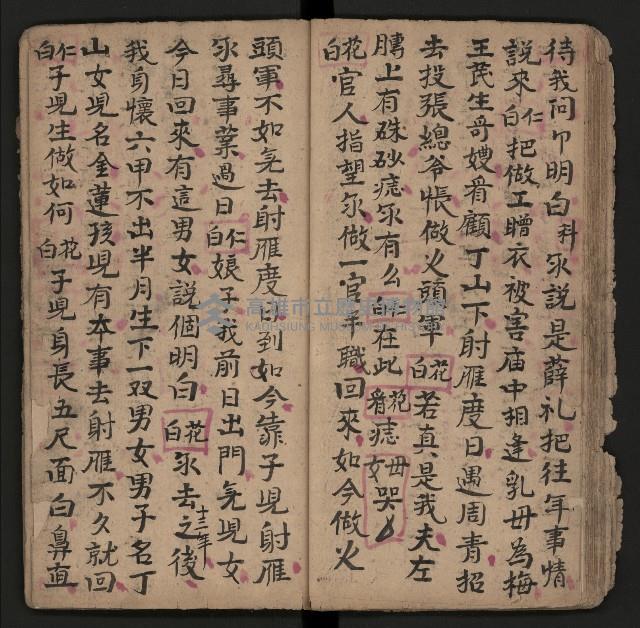 待我问卩明白科永說是薛礼把往年事情
說來仁白把做工贈衣被害庙中相逢乳毋為梅
王茂生哥嫂看顧丁山下射雁度日遇周青招
去投張總爷帳做火頭軍花白若真是我夫左
膊上有硃砂痣永有么白在此花看痣毋女哭介
花白官人指望永做一官半職回來如今做火
頭軍不如先去射雁度日到如今靠子児射雁
永尋事業過日仁白娘子我前日出門先児女
今日回來有這男女說個明白花白永去之後十三年
我身懷六甲不出半月生下一双男女男子名丁
山女児名金蓮孩児有本事去射雁不久就回
仁白子児生做如何花白子児身長五尺面白鼻直
高雄市立歷史博物館
KAOHSIUNG MUSEUM OF HISTORY